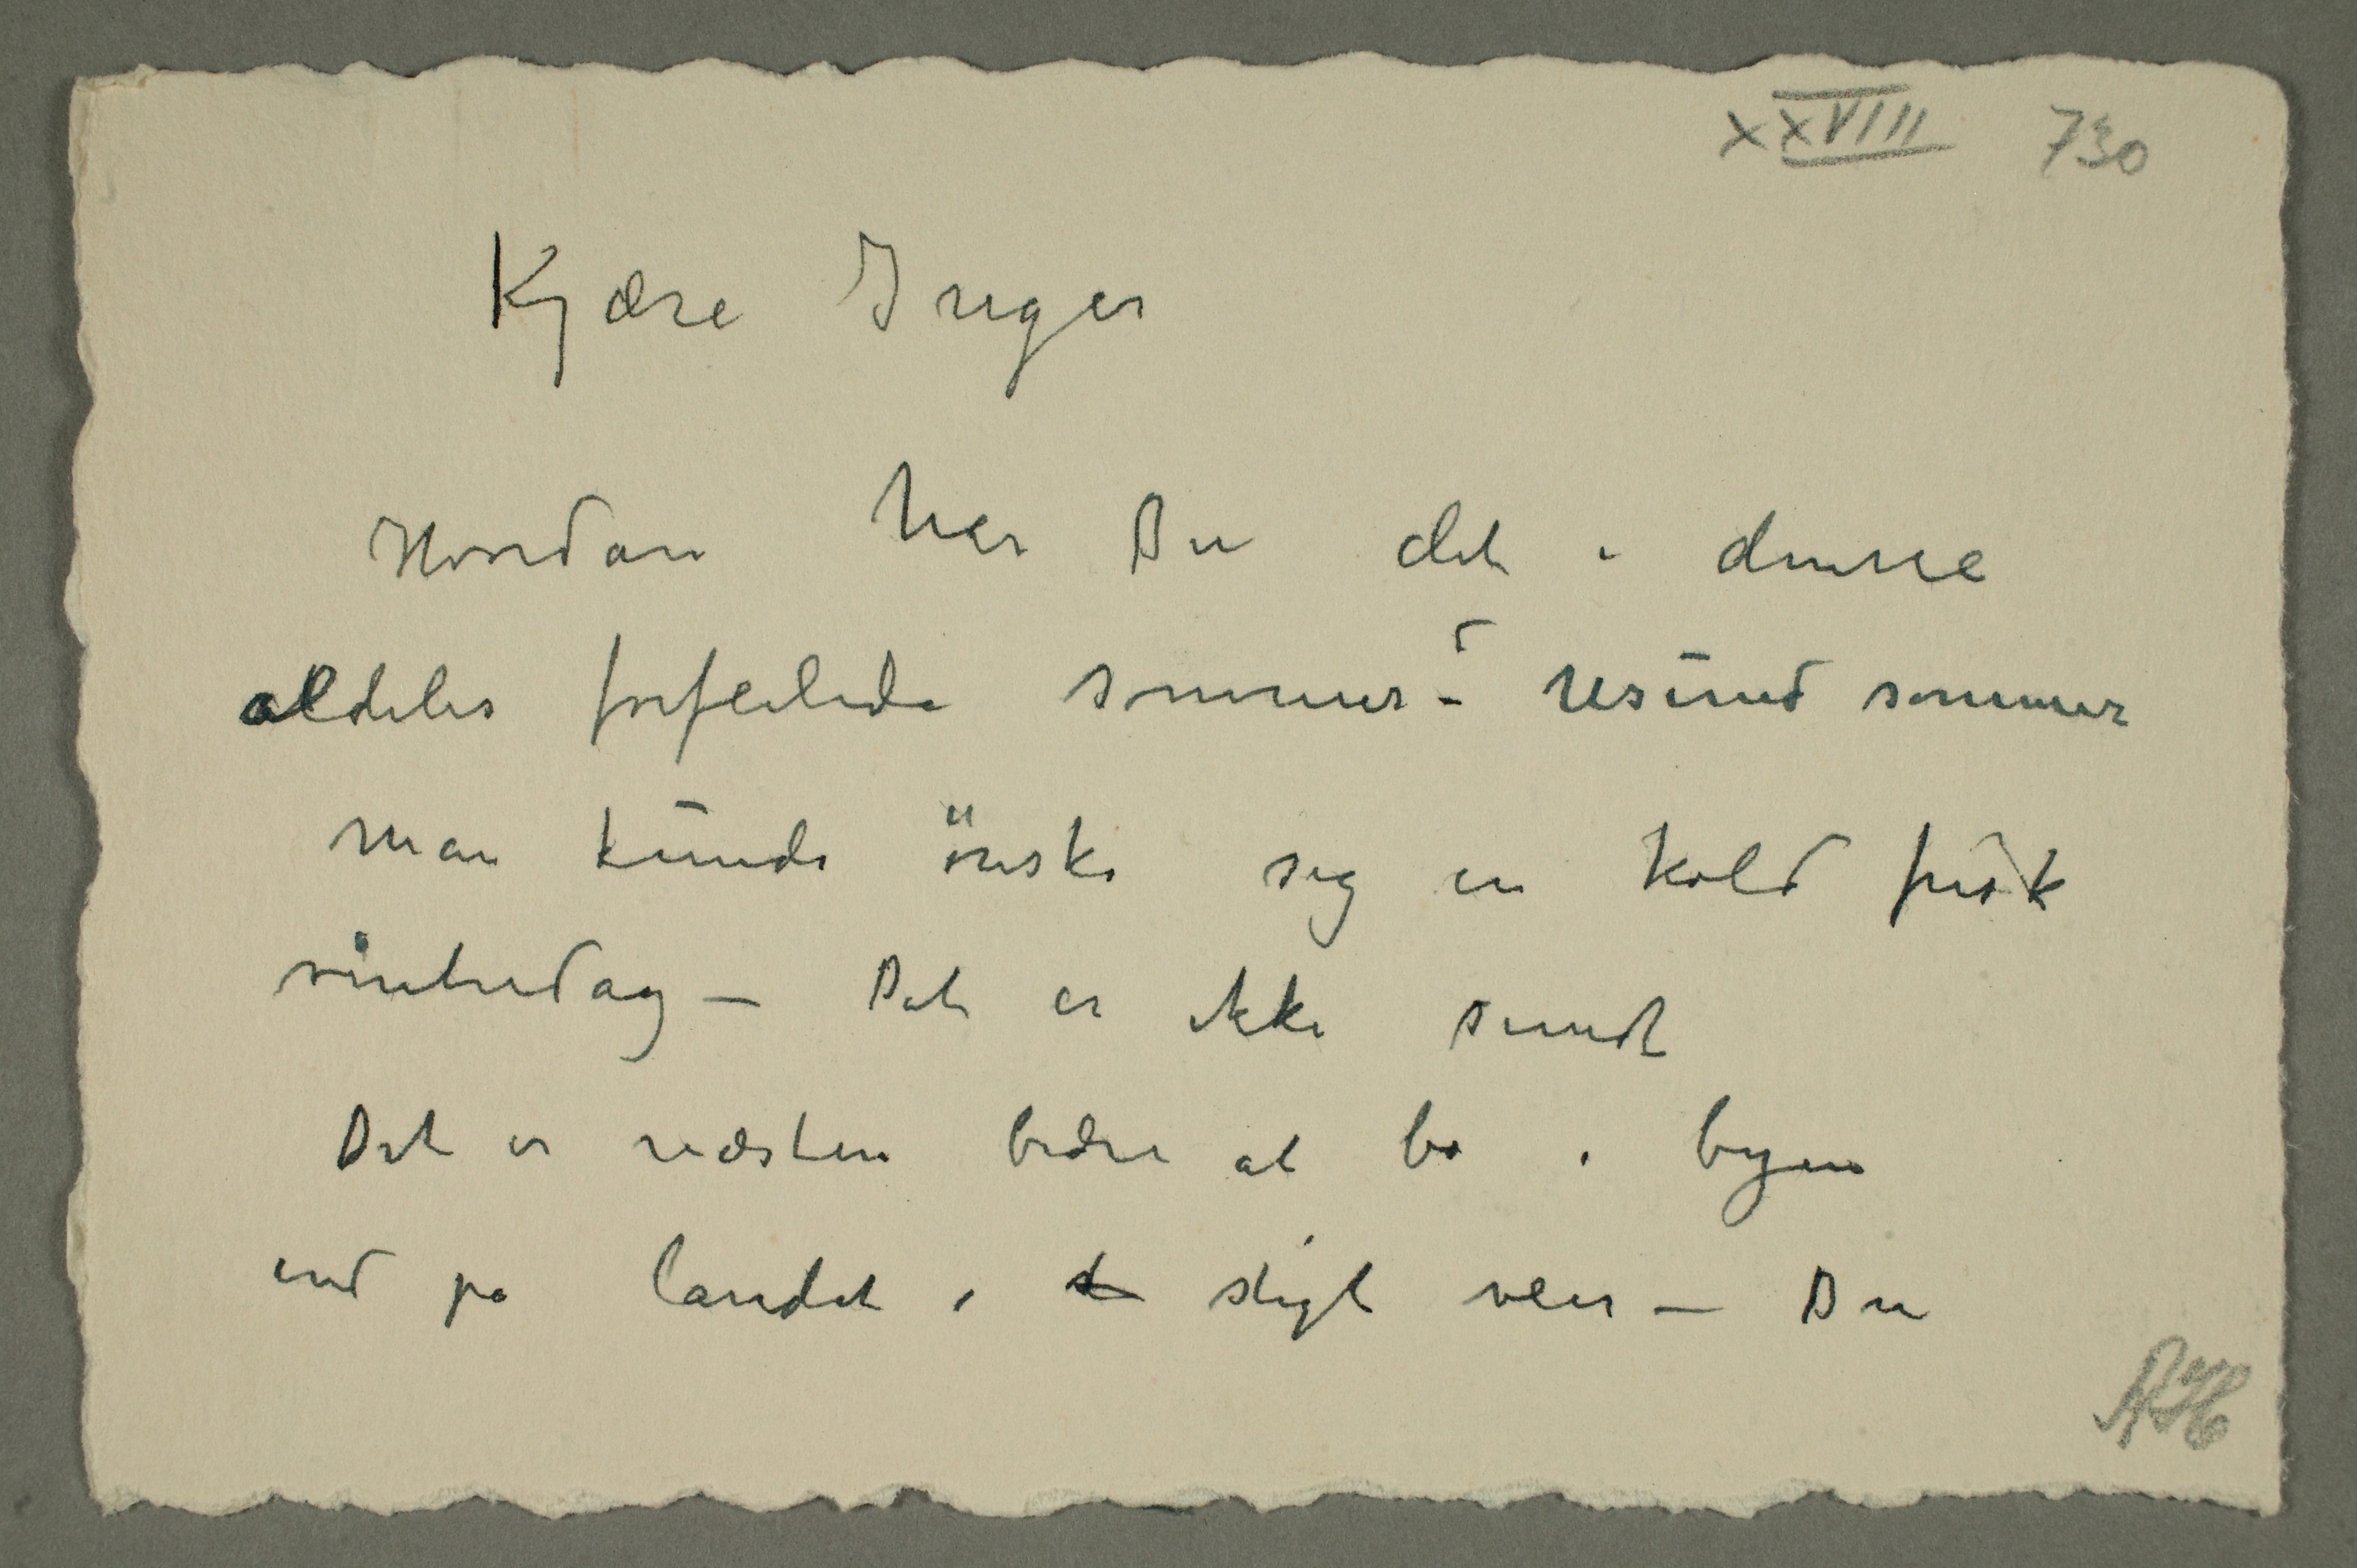 XXVIII 730
Kjære Inger
Hvordan har Du det i denne
aldeles forfeilede sommer – usund sommer
man kunde ønske sig en kold frisk
vinterdag – Det er ikke sundt
Det er næsten bedre at bo i byen
end på landet i sligt veir – Du